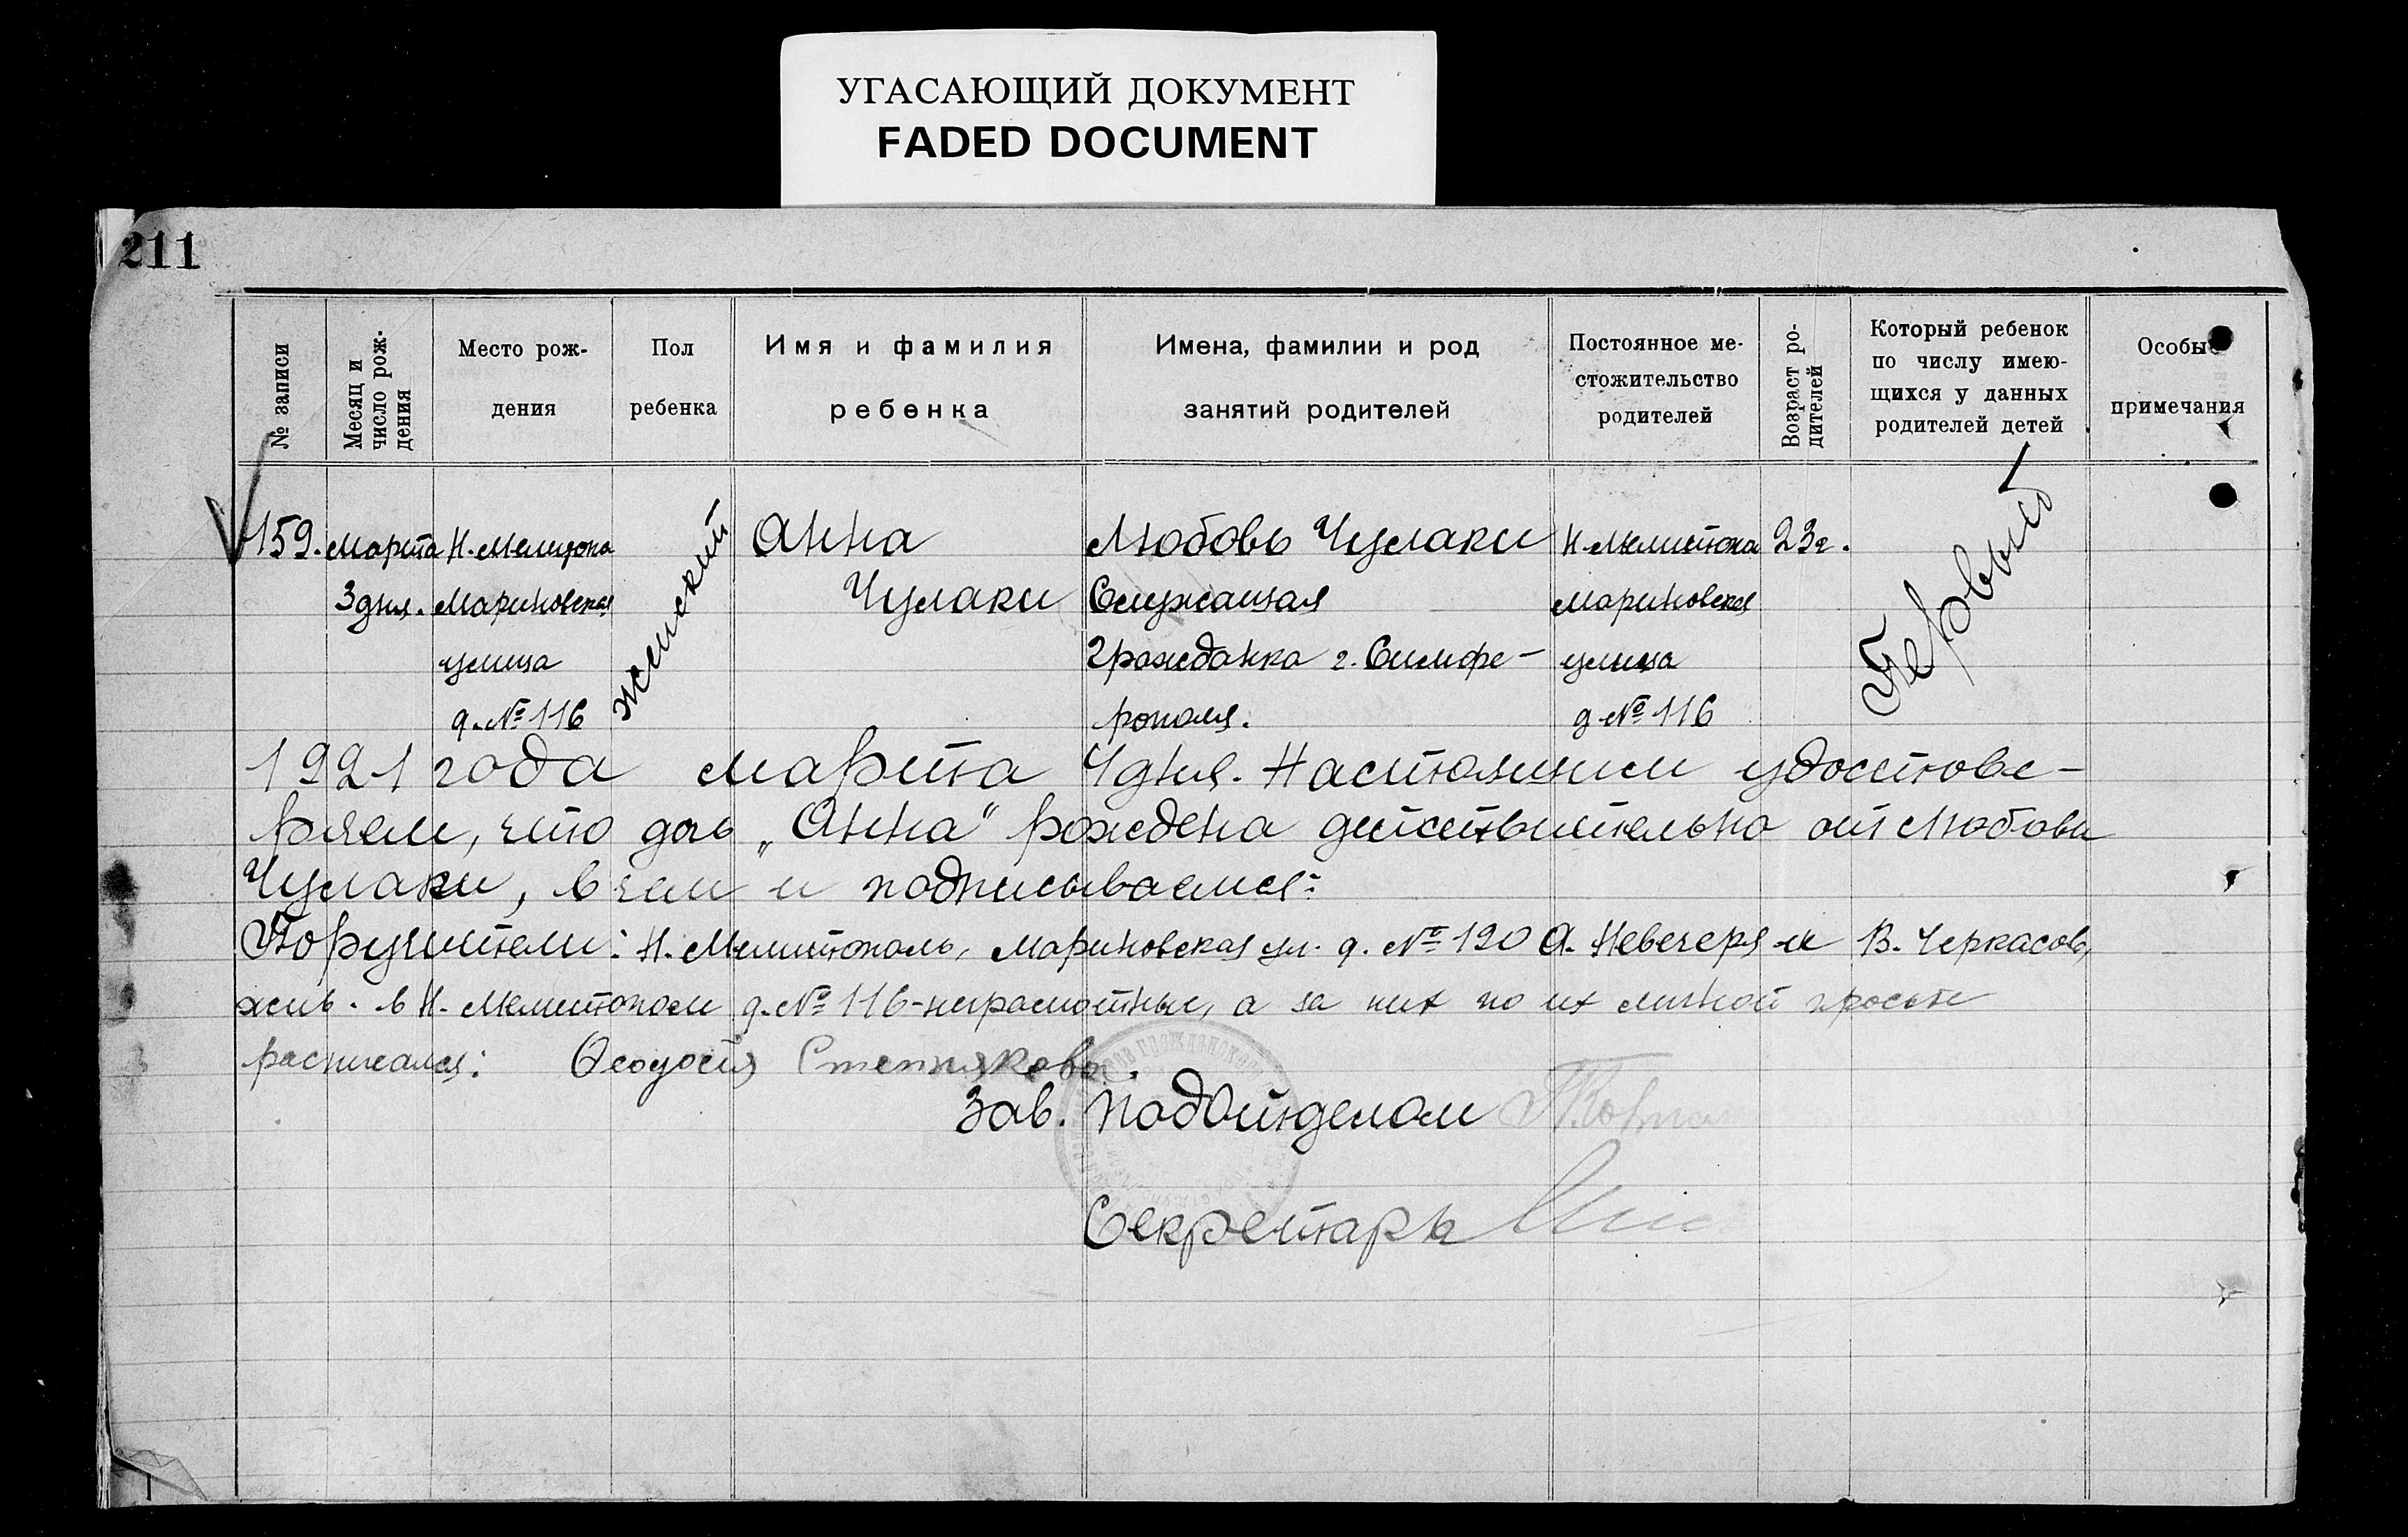 УГАСАЮЩИЙ ДОКУМЕНТ
FADED DOCUMENT
211
№ записи
Месяц и
число рож-
дения
Место рож-
дения
Пол
ребенка
Имя и фамилия
ребенка
Имена, фамилии и род
занятий родителей
Постоянное ме-
стожительство
родителей
Возраст ро-
дителей
Который ребенок
по числу имею-
щихся у данных
родителей детей
Особые
примечания
159.
Марта
3 дня.
Н. Мелитопо
Мариновская
улица
д. № 116
женский
Анна
Чулаки
Любовь Чулаки
Служащая
Гражданка г. Симфе-
рополя.
Н. Мелитопо
Мариновская
улица
д № 116
23 г.
Первый
1921 года марта 4 дня. Настоящим удостове-
ряем, что дочь „Анна" рождена действительно от Любови
Чулаки, в чем и подписываемся:
Поручители: Н. Мелитополь, Мариновская ул. д. № 120 А. Невечеря и В. Черкасов,
жив. в Н. Мелитополи д. № 116 - неграмотные, а за них по их личной просьбе
расписалась: Феодосия Степнякова.
Зав. подотделом
Секретарь